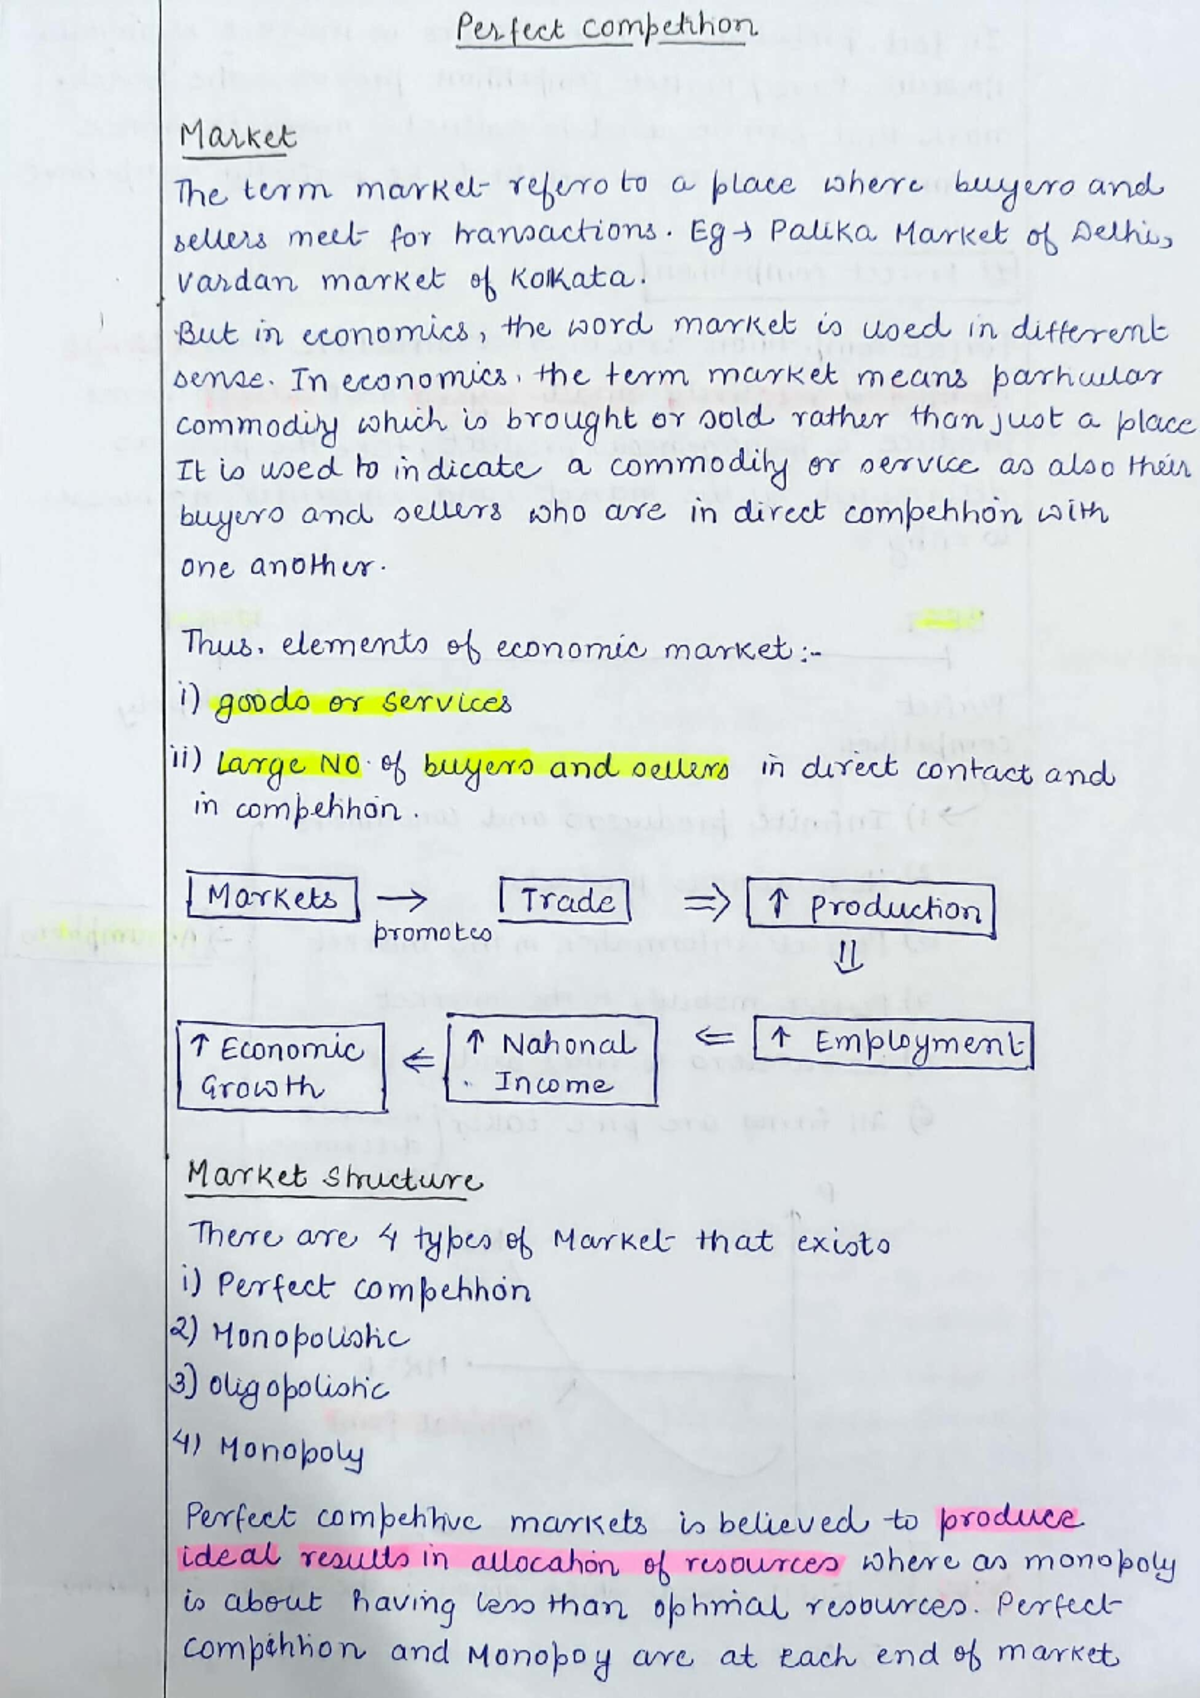 Perfect competition
Market
The term market refers to a place where buyers and
sellers meet for transactions. Eg → Palika Market of Delhi,
Vardan market of Kolkata.
But in economics, the word market is used in different
sense. In economics, the term market means particular
commodity which is brought or sold rather than just a place
It is used to indicate a commodity or service as also their
buyers and sellers who are in direct competition with
one another.
Thus, elements of economic market :-
i) goods or services
ii) Large No. of buyers and sellers in direct contact and
in competition.
Markets → promotes Trade ⇒ ↑ Production
⇓
↑ Economic Growth ⇐ ↑ National Income ⇐ ↑ Employment
Market Structure
There are 4 types of Market that exists
i) Perfect competition
2) Monopolistic
3) Oligopolistic
4) Monopoly
Perfect competitive markets is believed to produce
ideal results in allocation of resources where as monopoly
is about having less than optimal resources. Perfect
competition and Monopoy are at each end of market